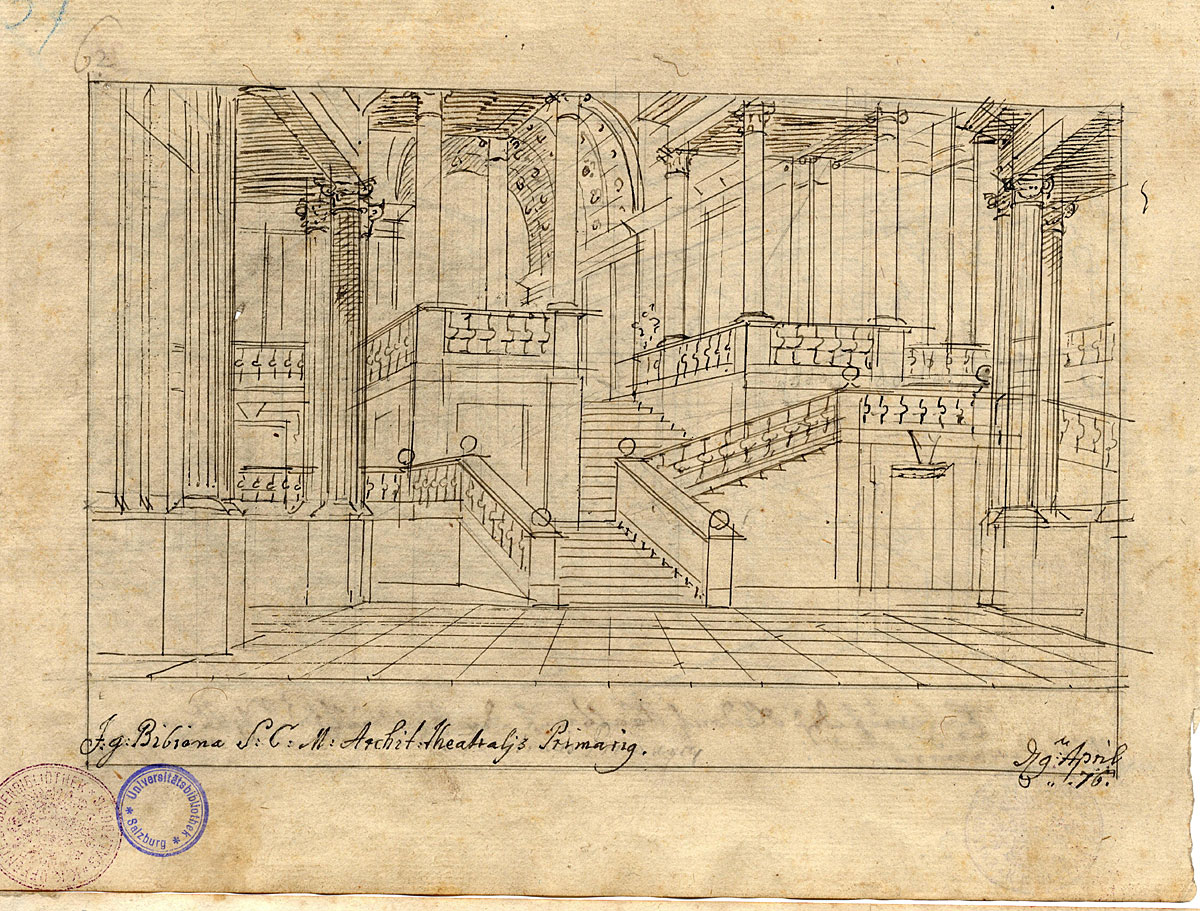 62
J: g: Bibiena S: C: M: Archit: Theatralis Primarig.
April
76.
Universitätsbibliothek
* Salzburg *